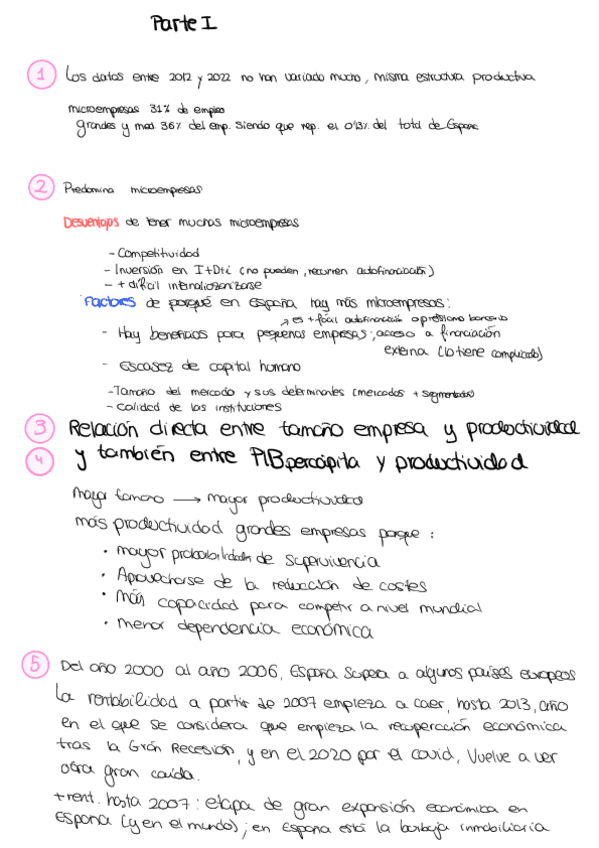 Parte I
1 Los datos entre 2012 y 2022 no han variado mucho, misma estructura productiva
microempresas 31% de empleo
grandes y med. 36% del emp. siendo que rep. el 0'3% del total de España
2 Predomina microempresas
Desventajas de tener muchas microempresas
- Competitividad
- Inversión en I+D+i (no pueden, recurren autofinanciación)
- + difícil internalizonarse
Factores de porqué en España hay más microempresas:
es + fácil autofinanciación o préstamo bancario
- Hay beneficios para pequeñas empresas; acceso a financiación
externa (lo tiene complicado)
- escasez de capital humano
- Tamaño del mercado y sus determinates (mercados + segmentados)
- calidad de las instituciones
3 Relación directa entre tamaño empresa y productividad
4 y también entre PIB percápita y productividad
mayor tamaño → mayor productividad
más productividad grandes empresas porque:
• mayor probabilidades de supervivencia
• Aprovecharse de la reducción de costes
• más capacidad para competir a nivel mundial
• menor dependencia económica
5 Del año 2000 al año 2006, España supera a algunos países europeos
La rentabilidad a partir de 2007 empieza a caer, hasta 2013, año
en el que se considera que empieza la recuperación económica
tras la Gran Recesión, y en el 2020 por el covid, vuelve a ver
otra gran caída.
+ rent. hasta 2007: etapa de gran expansión económica en
España (y en el mundo); en España está la burbuja inmobiliaria